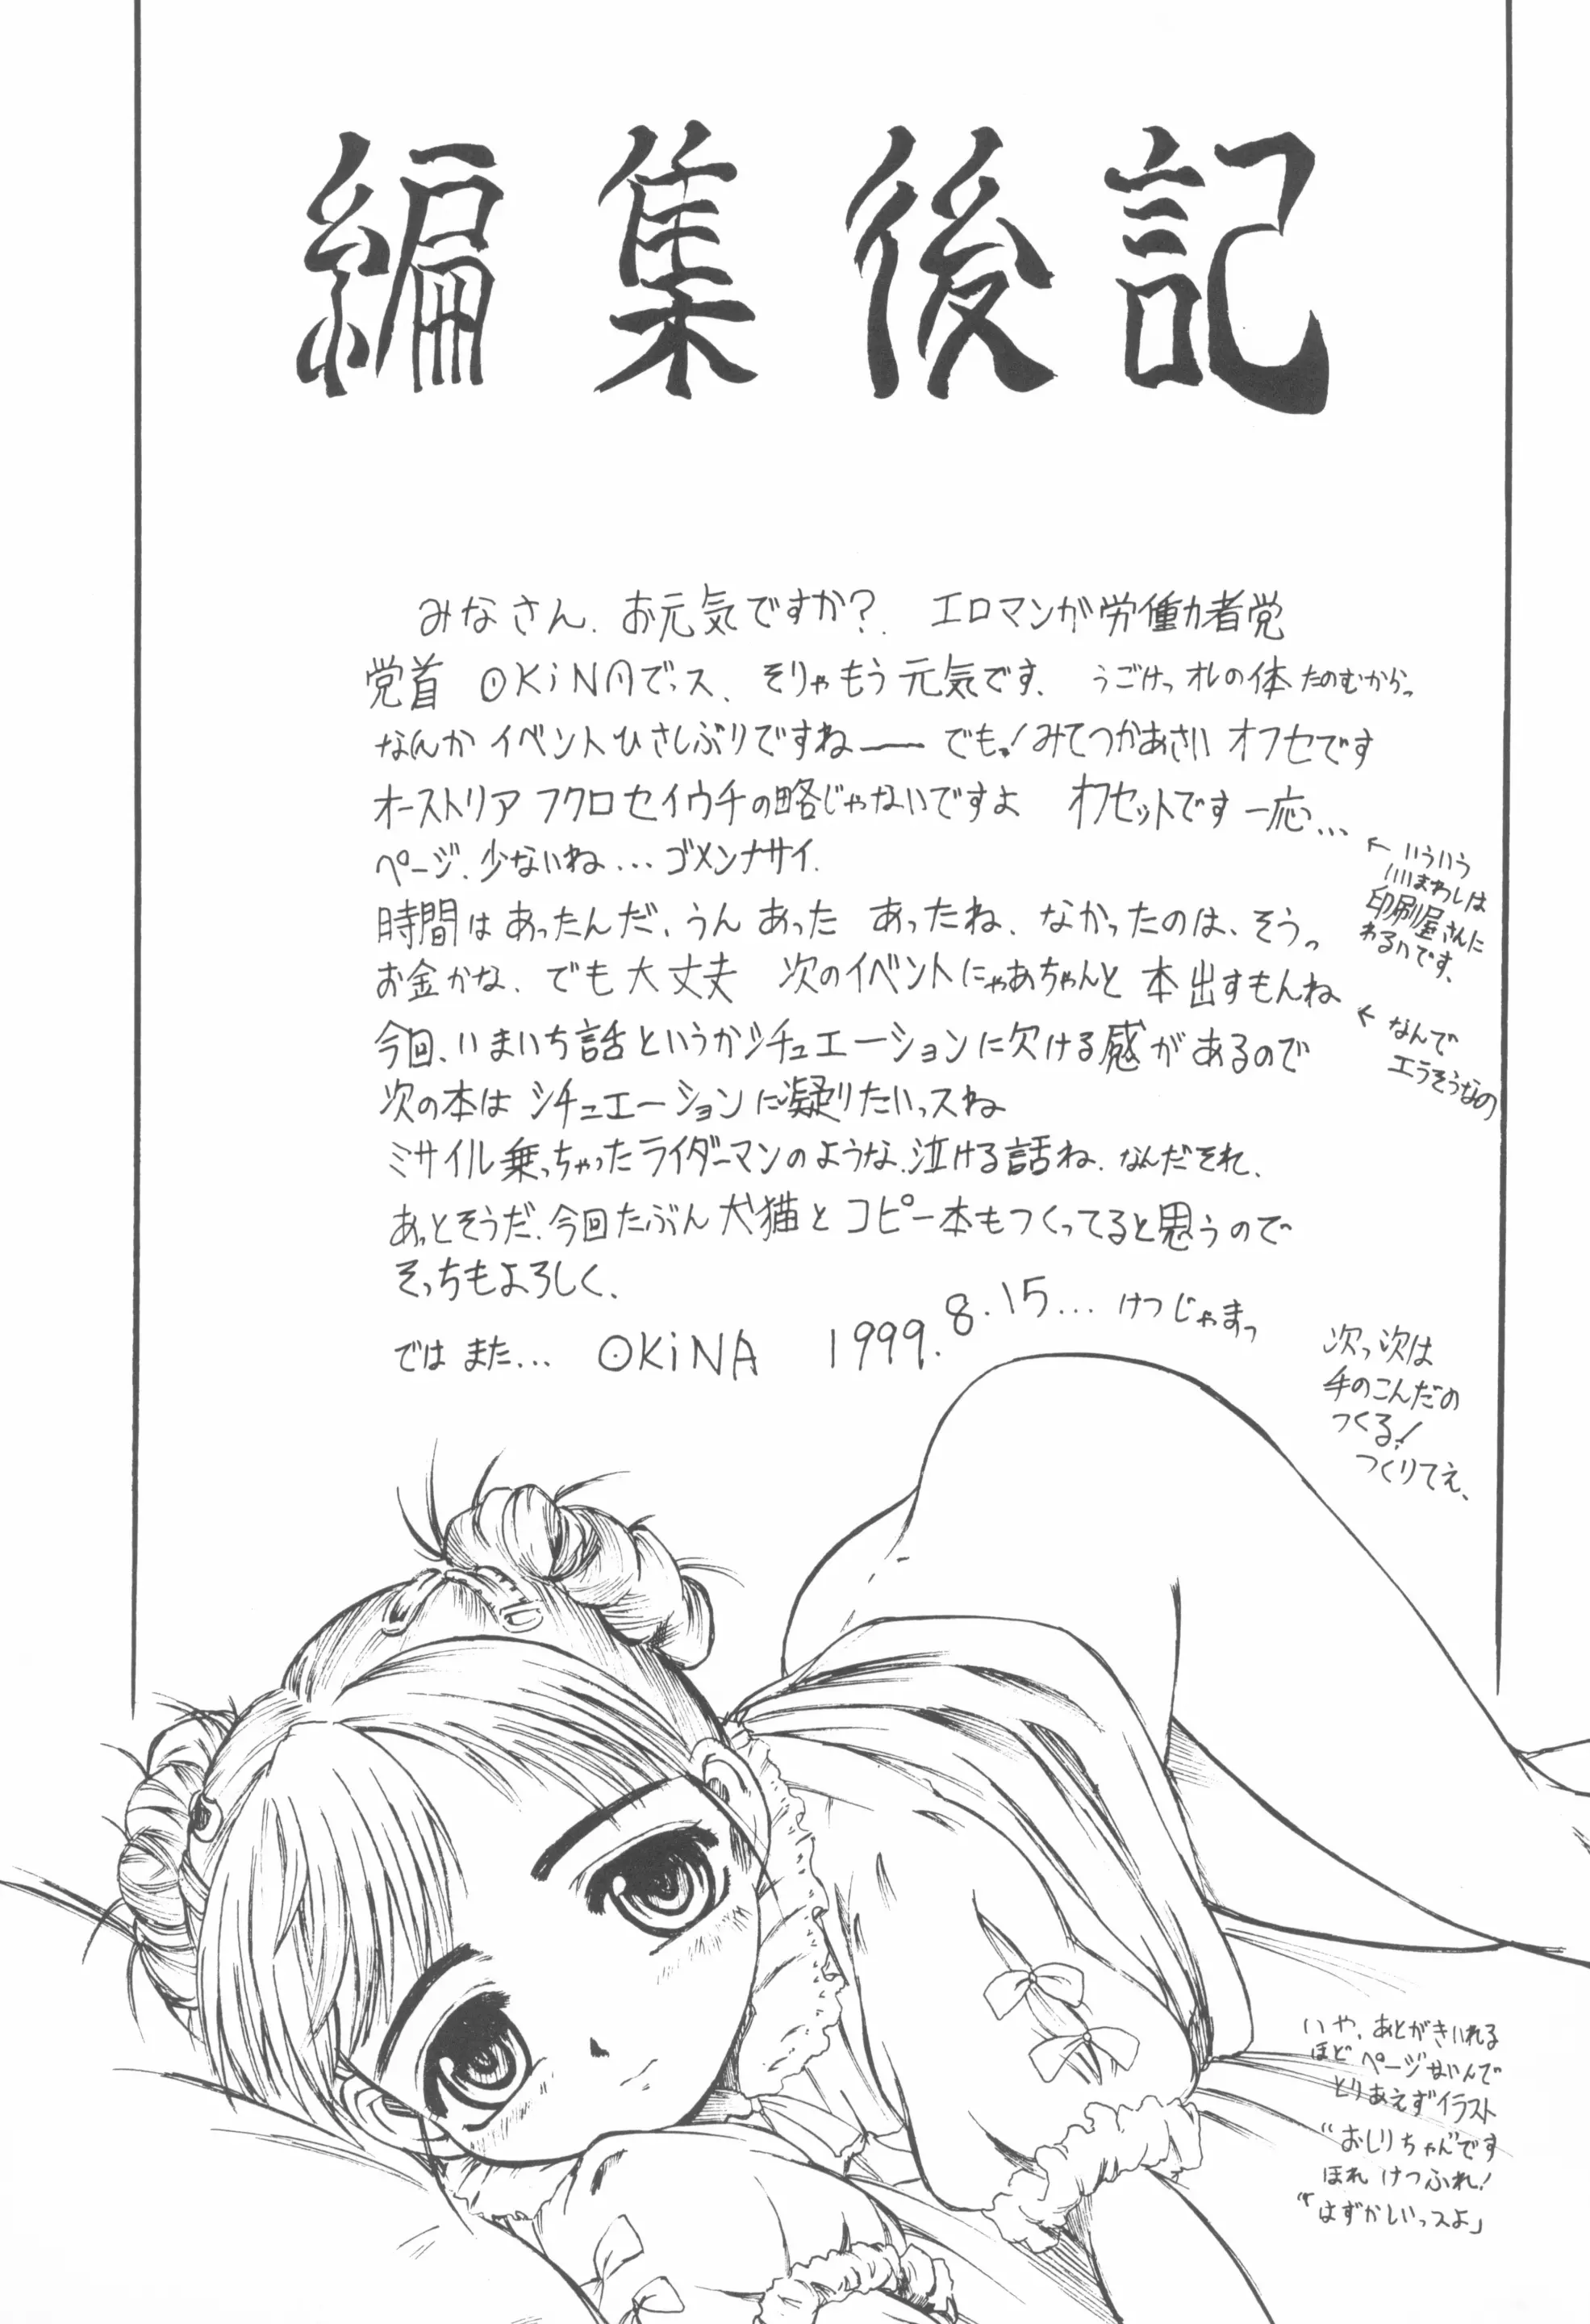 編集後記
みなさん、お元気ですか?. エロマンガ労働力者党
党首 OKiNAでっス、そりゃもう元気です、 うごけっ オレの体 たのむからっ
なんか イベントひさしぶりですねー でもっ!みてつかあさい オフセです
オーストリア フクロセイウチの略じゃないですよ オフセットです 一応っ…
ページ、少ないね… ゴメンナサイ.
←いういう
いいまわしは
印刷屋さんに
わるいです、
時間はあったんだ、うん あった あったね、なかったのは、そうっ
お金かな、でも大丈夫 次のイベントにゃあちゃんと 本出すもんね
←なんで
エラそうなの
今回、いまいち話というかシチュエーションに欠ける感があるので
次の本は シチュエーションに凝りたいっスね
ミサイル乗っちゃったライダーマンのような、泣ける話ね、なんだそれ、
あっとそうだ、今回たぶん犬猫と コピー本もつくってると思うので
そっちもよろしく、
では また… OKiNA 1999.8.15… けつじゃまっ
次っ 次は
手のこんだの
つくる!
つくりてえ、
いや、あとがきいれる
ほど ページないんで
とりあえずイラスト
“おしりちゃん”です
ほれ けつふれ!
“はずかしいっスよ」